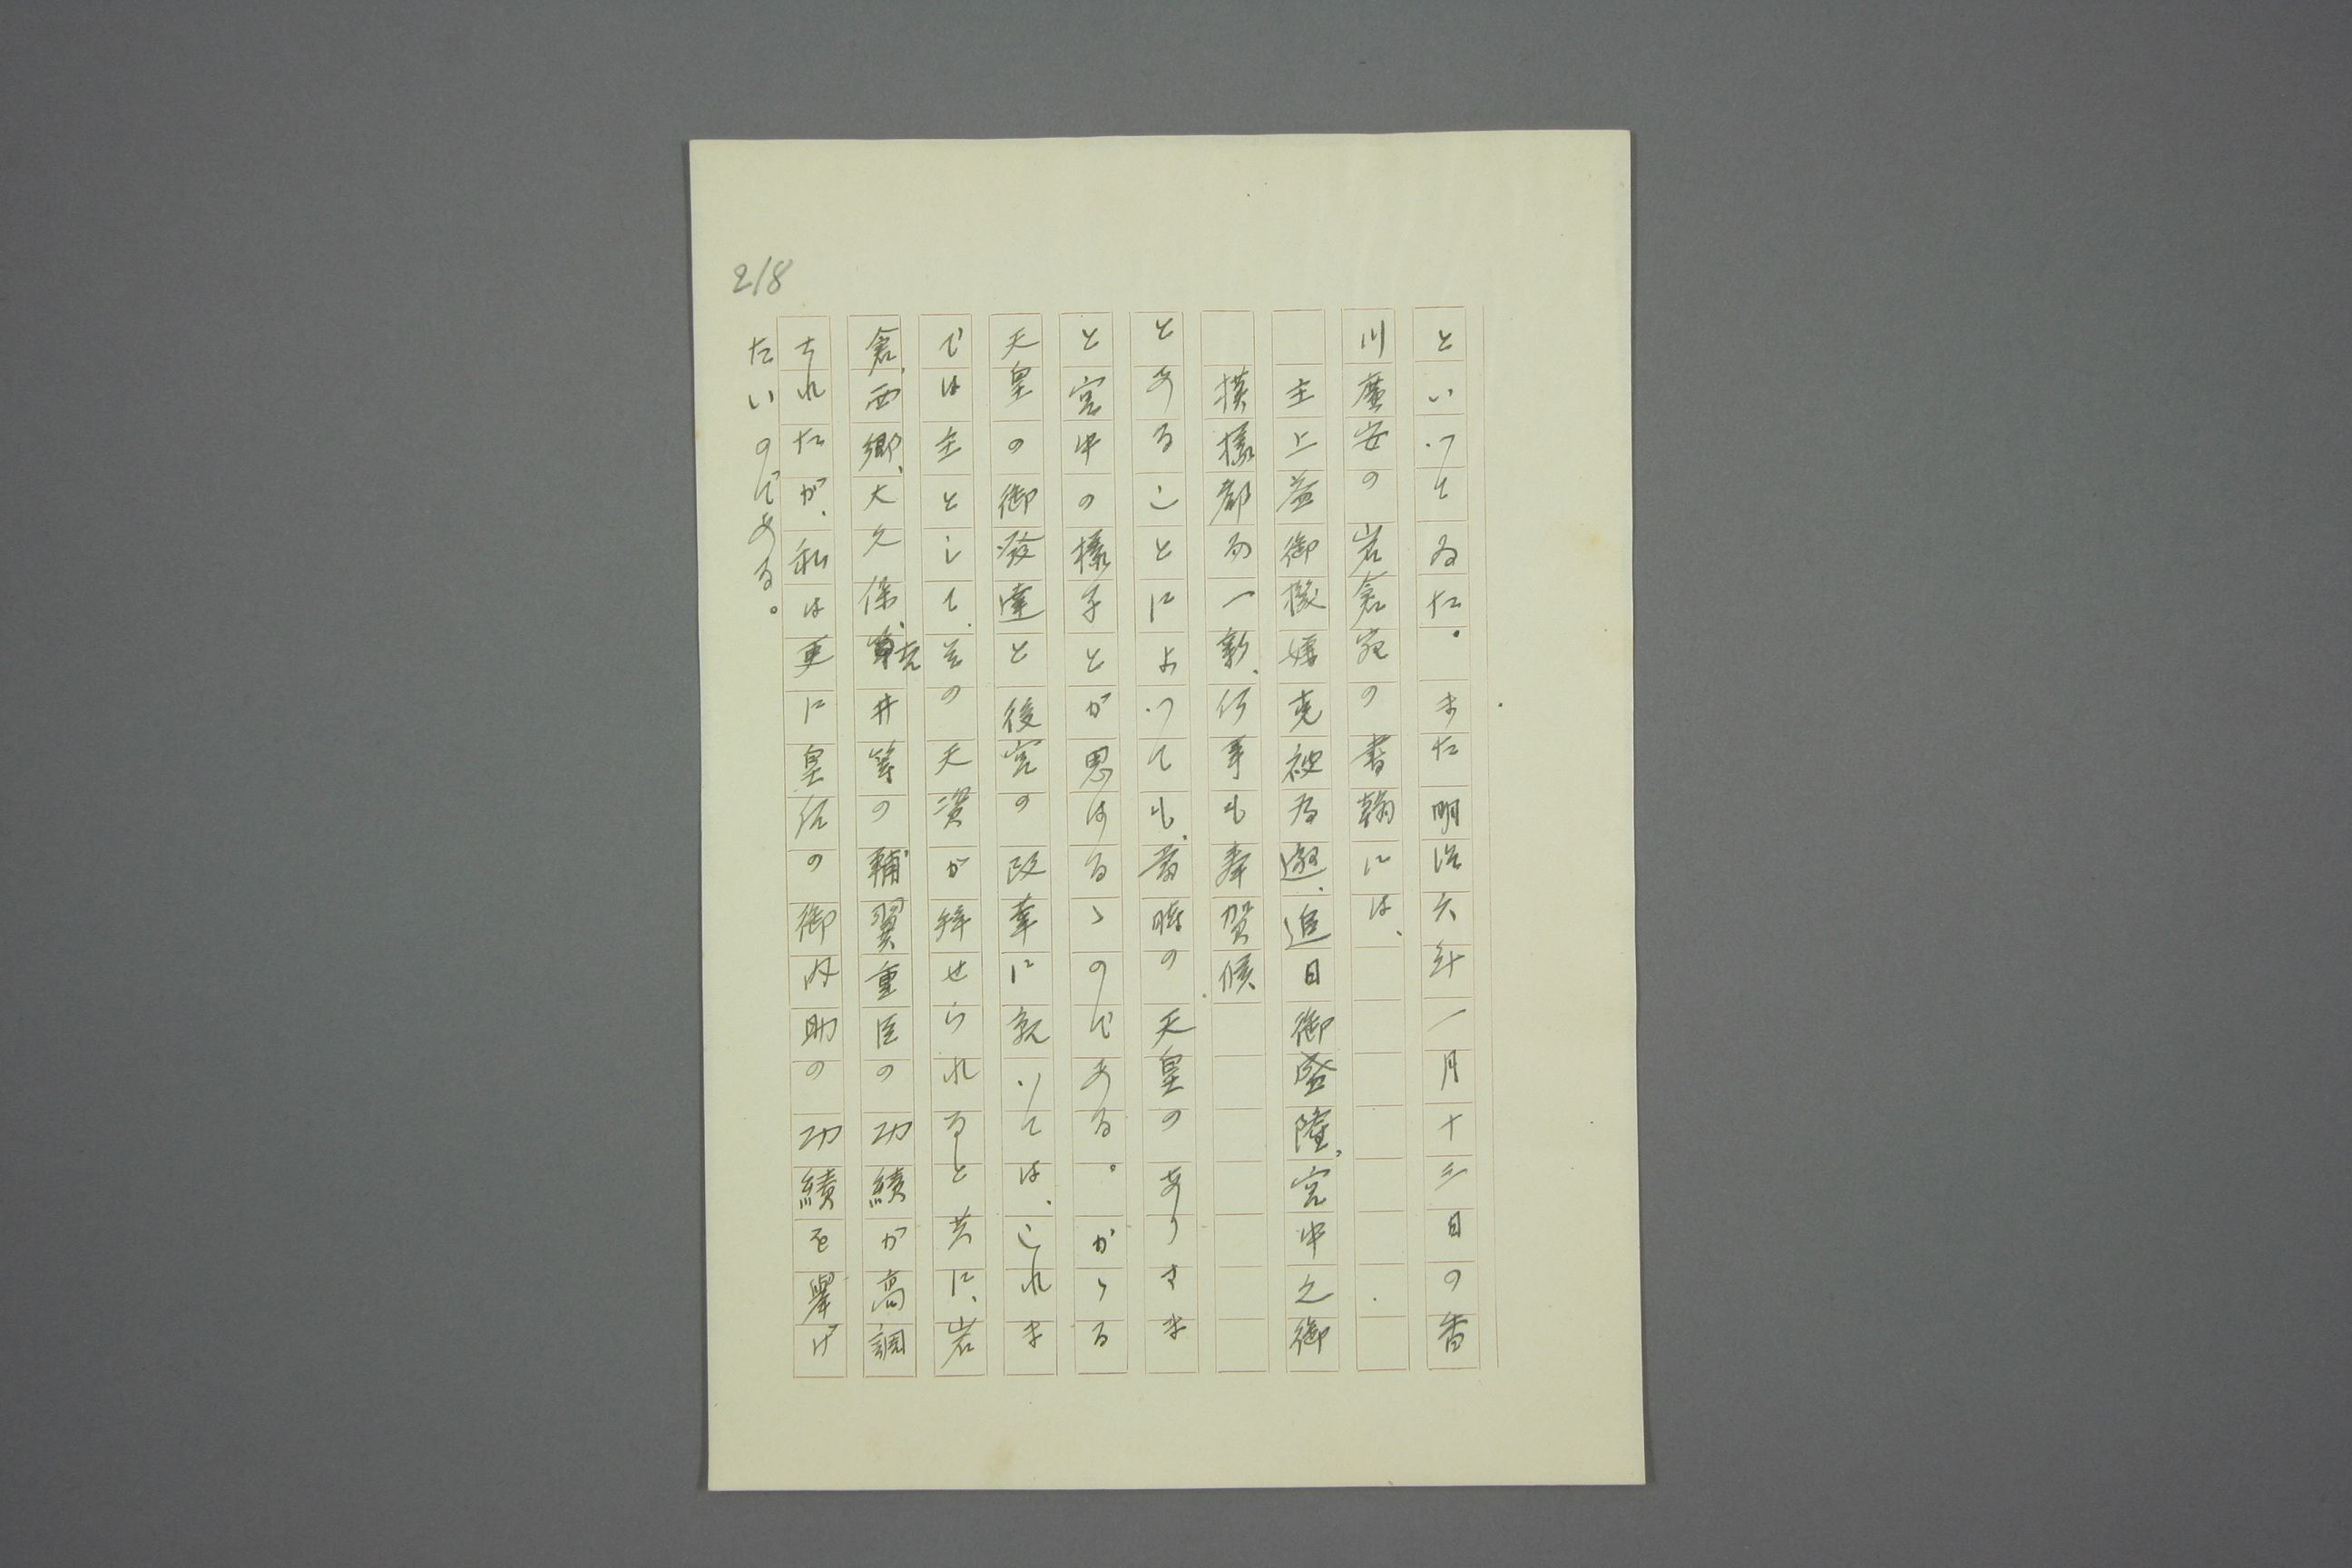 といつてゐた。また明治六年一月十三日の香
川廣安の岩倉宛の書翰には、
主上益御機嫌克被為遊、追日御盛隆、宮中之御
模樣都而一新、何事も奉賀候
とあることによつても、當時の天皇のありさま
と宮中の樣子とが思はるゝのである。かゝる
天皇の御發達と後宮の改革に就いては、これま
では主として、その天資が拜せられると共に、岩
倉、西郷、大久保、元井等の輔翼重臣の功績が高調
されたが、私は更に皇后の御内助の功績を擧げ
たいのである。
218